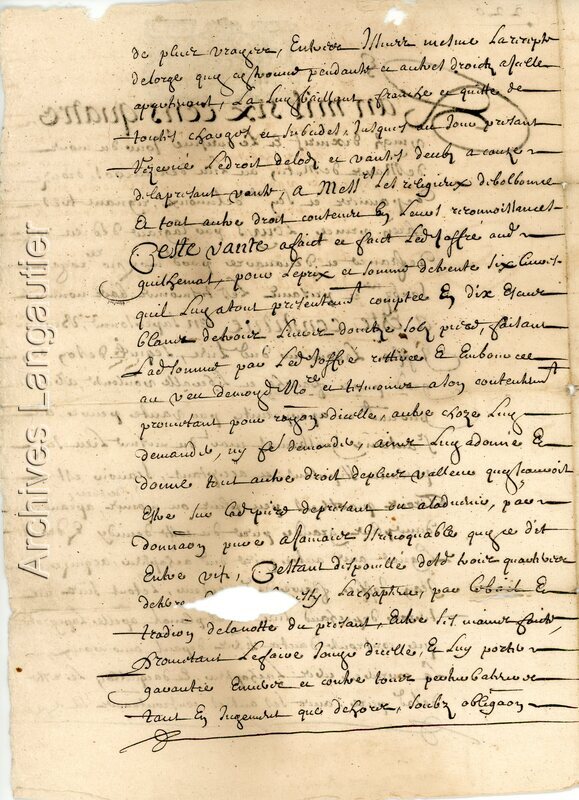 de plus vragere, Entvire Illuec mesme La recepte
de lorge que se trouve pendante et autres droictz a icelle
apartenant, La Luy baillant franche et quitte de
toutes charges et subcides, Jusques au Jour presant
Rezervé Le droit de lodz et vantes deubz a cauze
de la presant vante, a Messrs Les religieux de bolbonne
Et tout autre droit contenu En Leurs recognoissances
Ceste vante a faict et faict Led Joffré aud
guilhemat, pour Le prix et somme de trente six Livres
quil Luy a tout presentemt comptée En dix Escus
blancs de trois Livres doutze solz piece, faisant
Lad somme par Led Joffré rettirée Et Emboursée
au veu de moyd Nore et tesmoins a son contentemt
prometant pour raizon dicelle, autre choze Luy
demander, ny fe demander, ains Luy a donné Et
donne tout autre droit de plus valleur que pouroit
Estre sur lad piece de presant ou a ladvenir, par
donnaon pure a Jamais Irrevoquable que se dit
Entre vifs, Cestant dispouillé
Lachapteur, par Le bail Et
tradiõn de la notte du presant, Entre ses mains faicte
Prometant Le faire Jouyr dicelle, Et Luy porter
garantie Envers et contre tous perturbateurs
tant En Jugement que dehors, soubz obligaõn
Archives Langautier